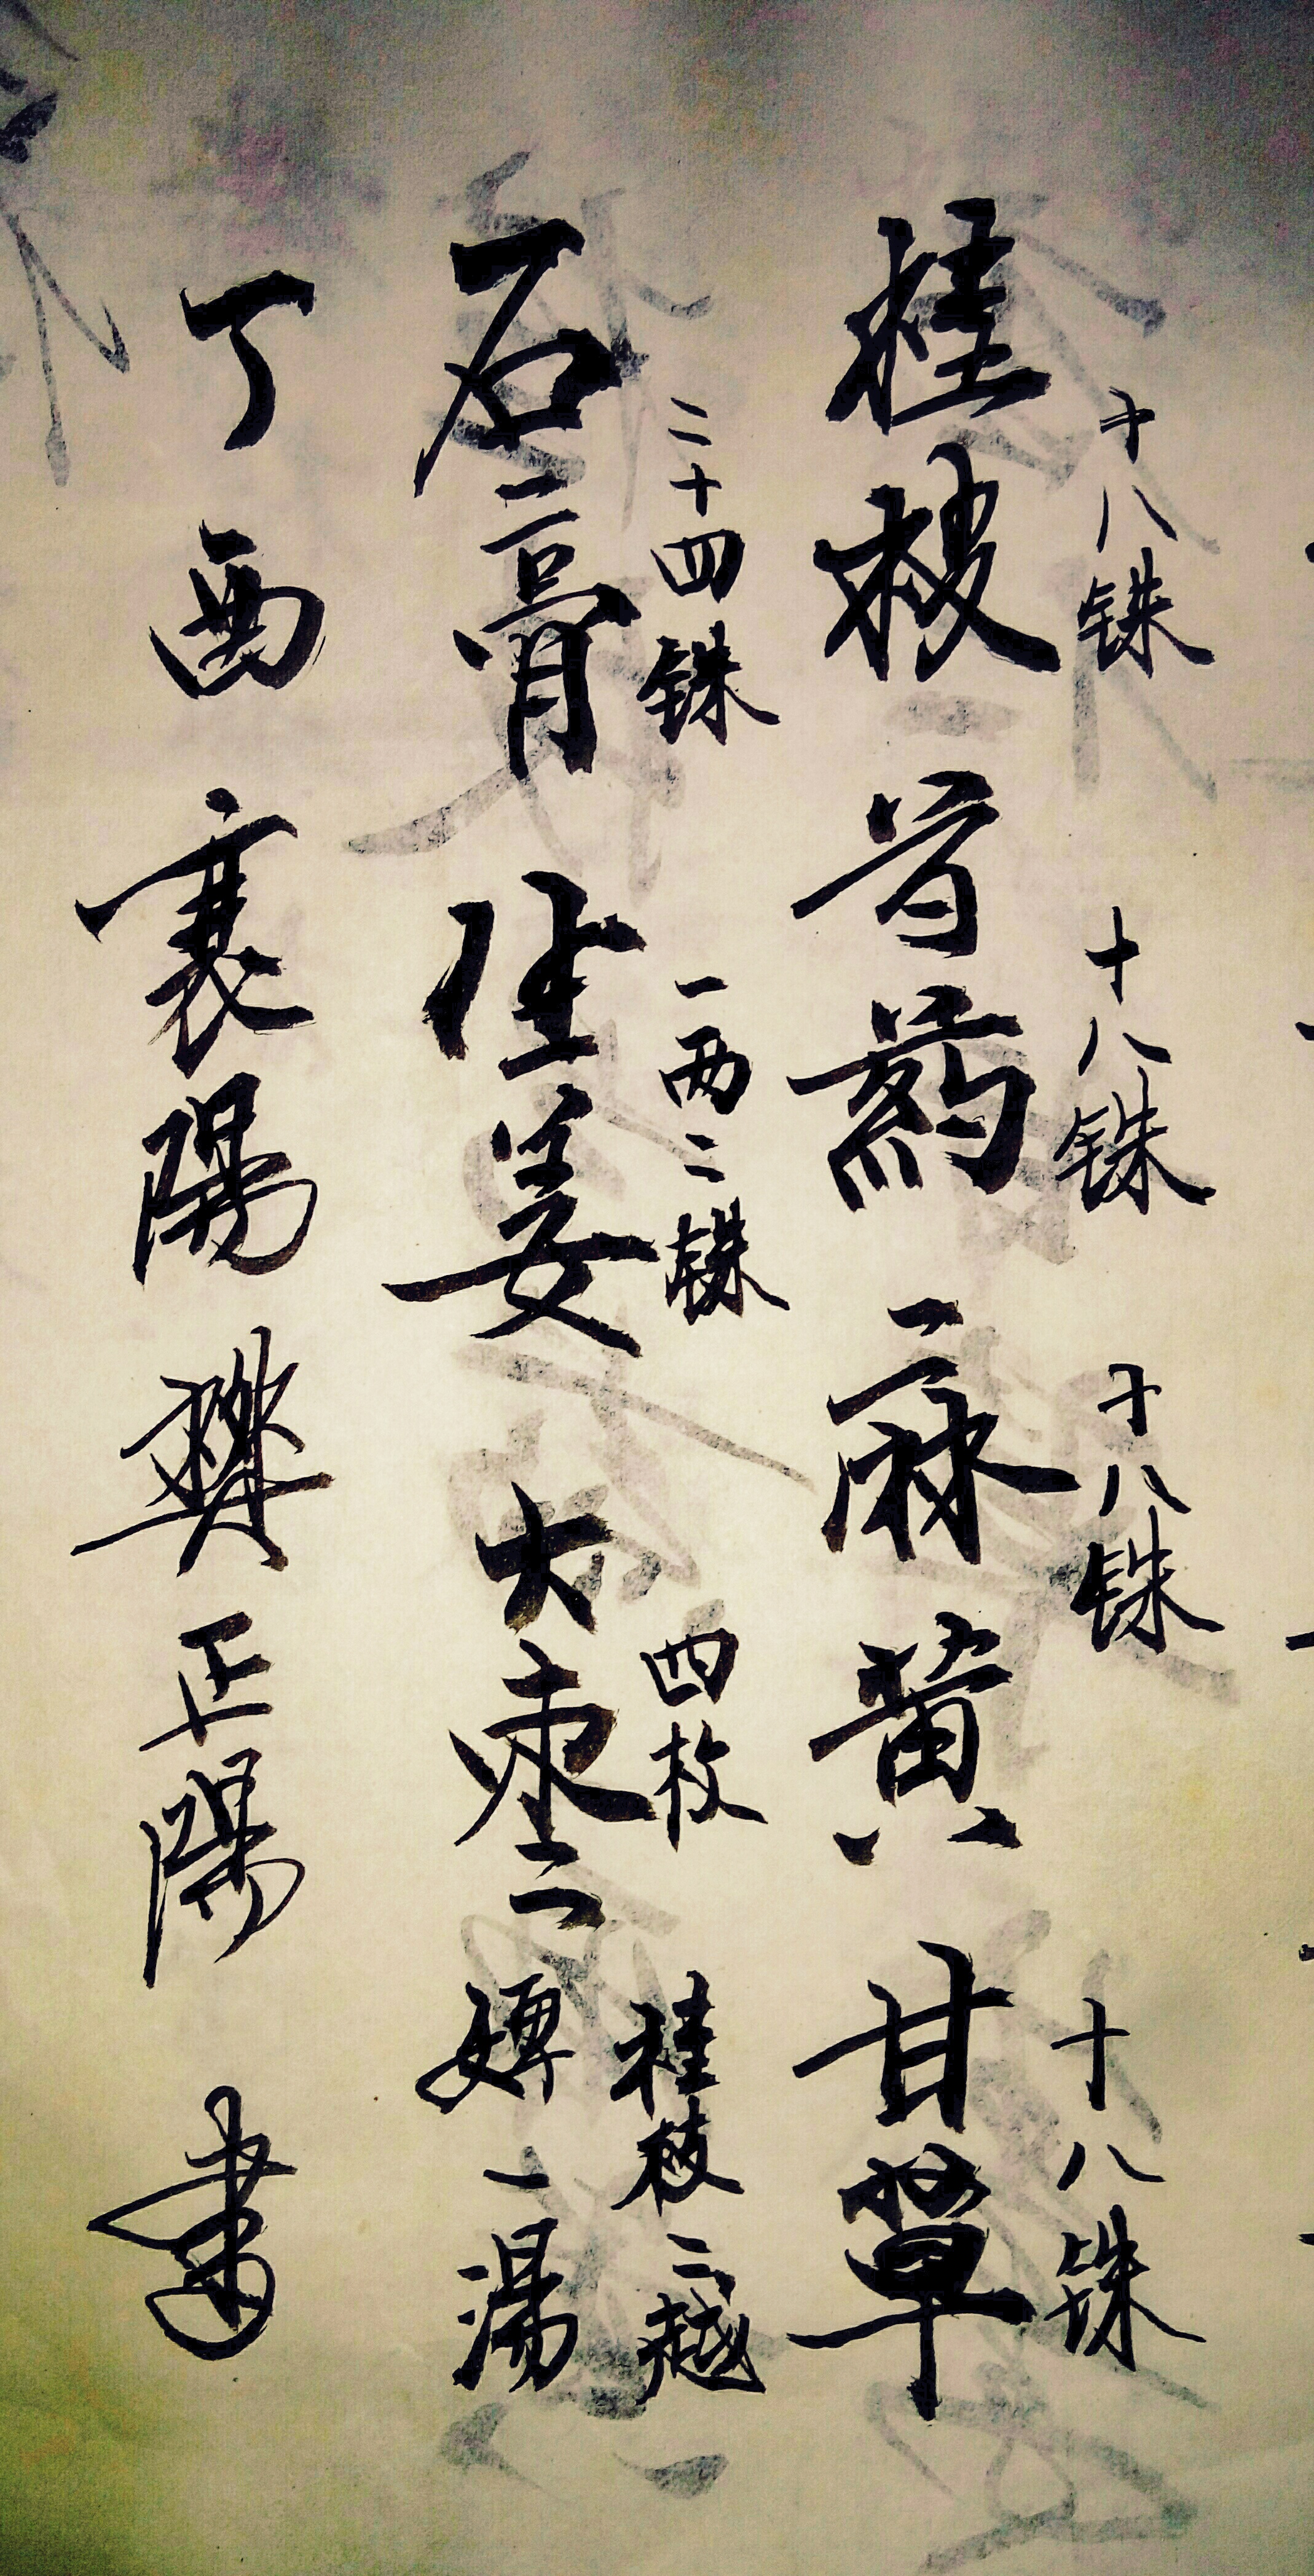 桂枝 芍藥 麻黃 甘草
十八銖 十八銖 十八銖 十八銖
石膏 生姜 大枣
二十四銖 一两二銖 四枚
桂枝二越
婢一湯
丁酉 襄陽 龔正陽 書